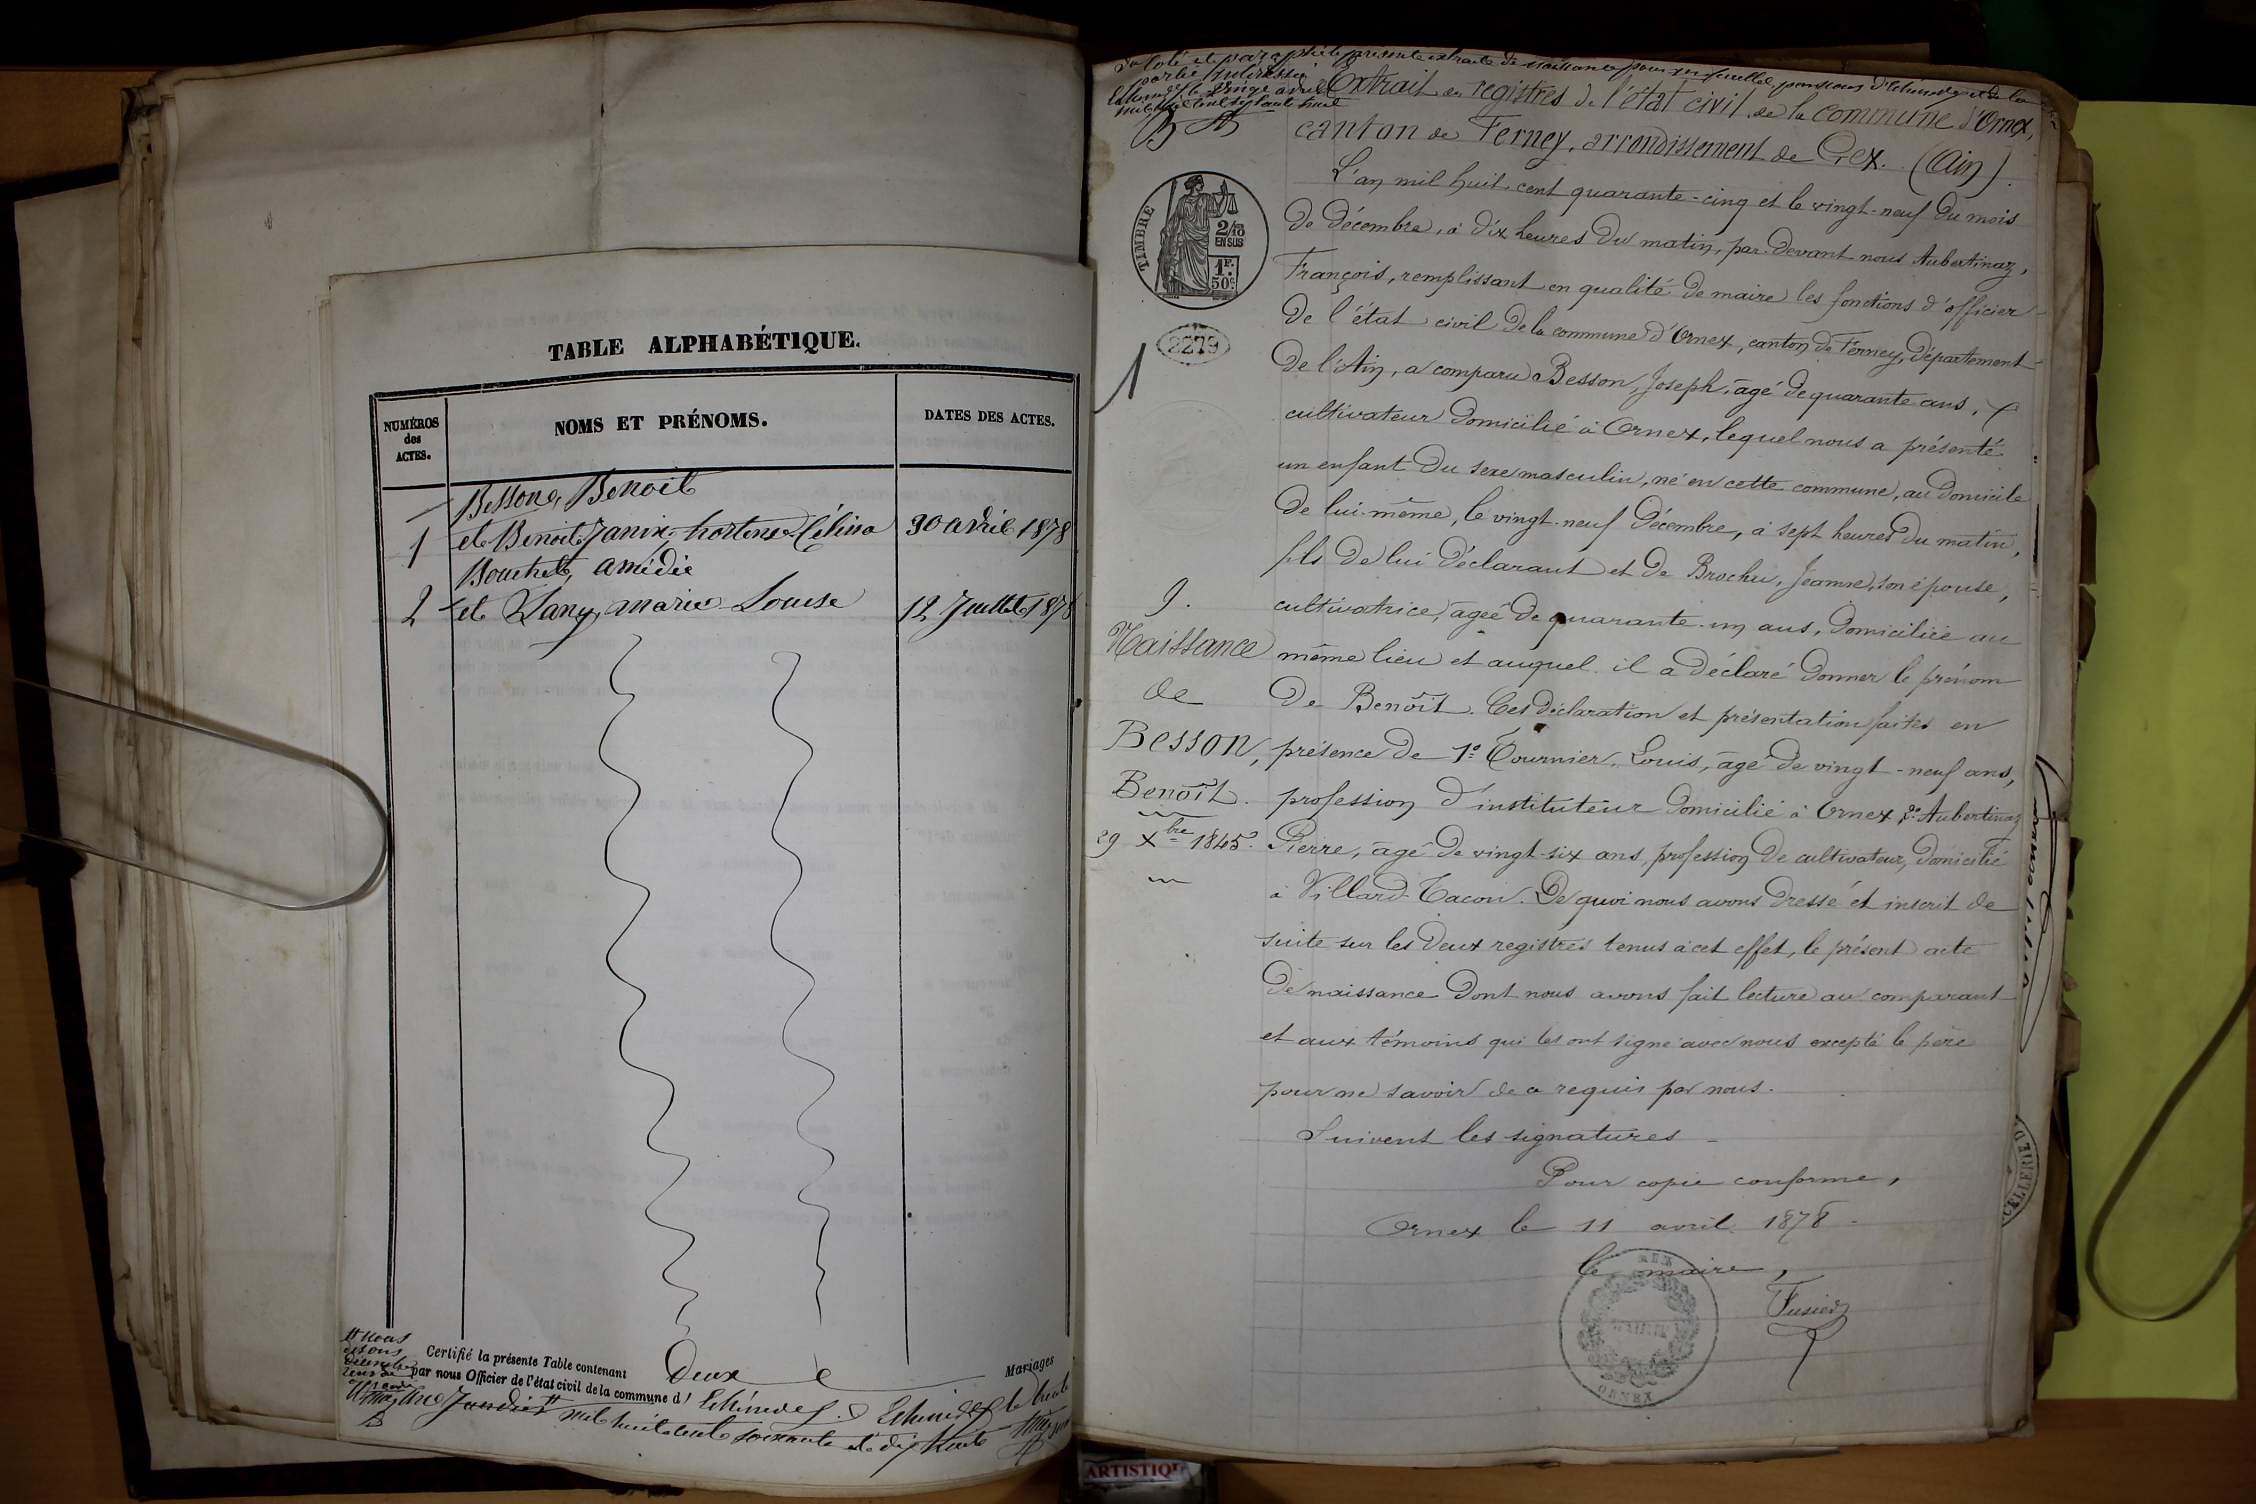 TABLE ALPHABÉTIQUE.
NUMÉROS
des
ACTES.
NOMS ET PRÉNOMS.
DATES DES ACTES.
Besson, Benoit
1 et Benoit Janin, hortense Célina 30 avril 1878
Bouchet, amédée
2 et Lany, marie Louise 12 Juillet 1878
Certifié la présente Table contenant Deux Mariages
par nous Officier de l'état civil de la commune d'
mil huit cent soixante et dix huit
Extrait des registres de l'état civil de la commune d'Ornex,
canton de Ferney, arrondissement de Gex. (Ain).
TIMBRE
2/10
EN SUS
1F.
50c.
2279
1
L'an mil huit cent quarante-cinq et le vingt-neuf du mois
de décembre, à dix heures du matin, par-devant nous Aubertinaz,
François, remplissant en qualité de maire les fonctions d'officier
de l'état civil de la commune d'Ornex, canton de Ferney, département
de l'Ain, a comparu Besson, Joseph, âgé de quarante ans,
cultivateur domicilié à Ornex, lequel nous a présenté
un enfant du sexe masculin, né en cette commune, au domicile
de lui-même, le vingt-neuf décembre, à sept heures du matin,
fils de lui déclarant et de Brochu, Jeanne, son épouse,
cultivatrice, âgée de quarante-un ans, domiciliée au
même lieu et auquel il a déclaré donner le prénom
de Benoît. Ces déclaration et présentation faites en
présence de 1º Tournier, Louis, âgé de vingt-neuf ans,
profession d'instituteur domicilié à Ornex, 2º Aubertinaz
Pierre, âgé de vingt-six ans, profession de cultivateur, domicilié
à Villard-Tacon. De quoi nous avons dressé et inscrit de
suite sur les deux registres tenus à cet effet, le présent acte
de naissance dont nous avons fait lecture au comparant
et aux témoins qui les ont signé avec nous excepté le père
pour ne savoir de ce requis par nous.
Suivent les signatures
Pour copie conforme,
Ornex le 11 avril 1878
le maire,
Fusier
MAIRIE
ORNEX
9.
Naissance
de
Besson,
Benoît.
29 Xbre 1845.
ARTISTIQU